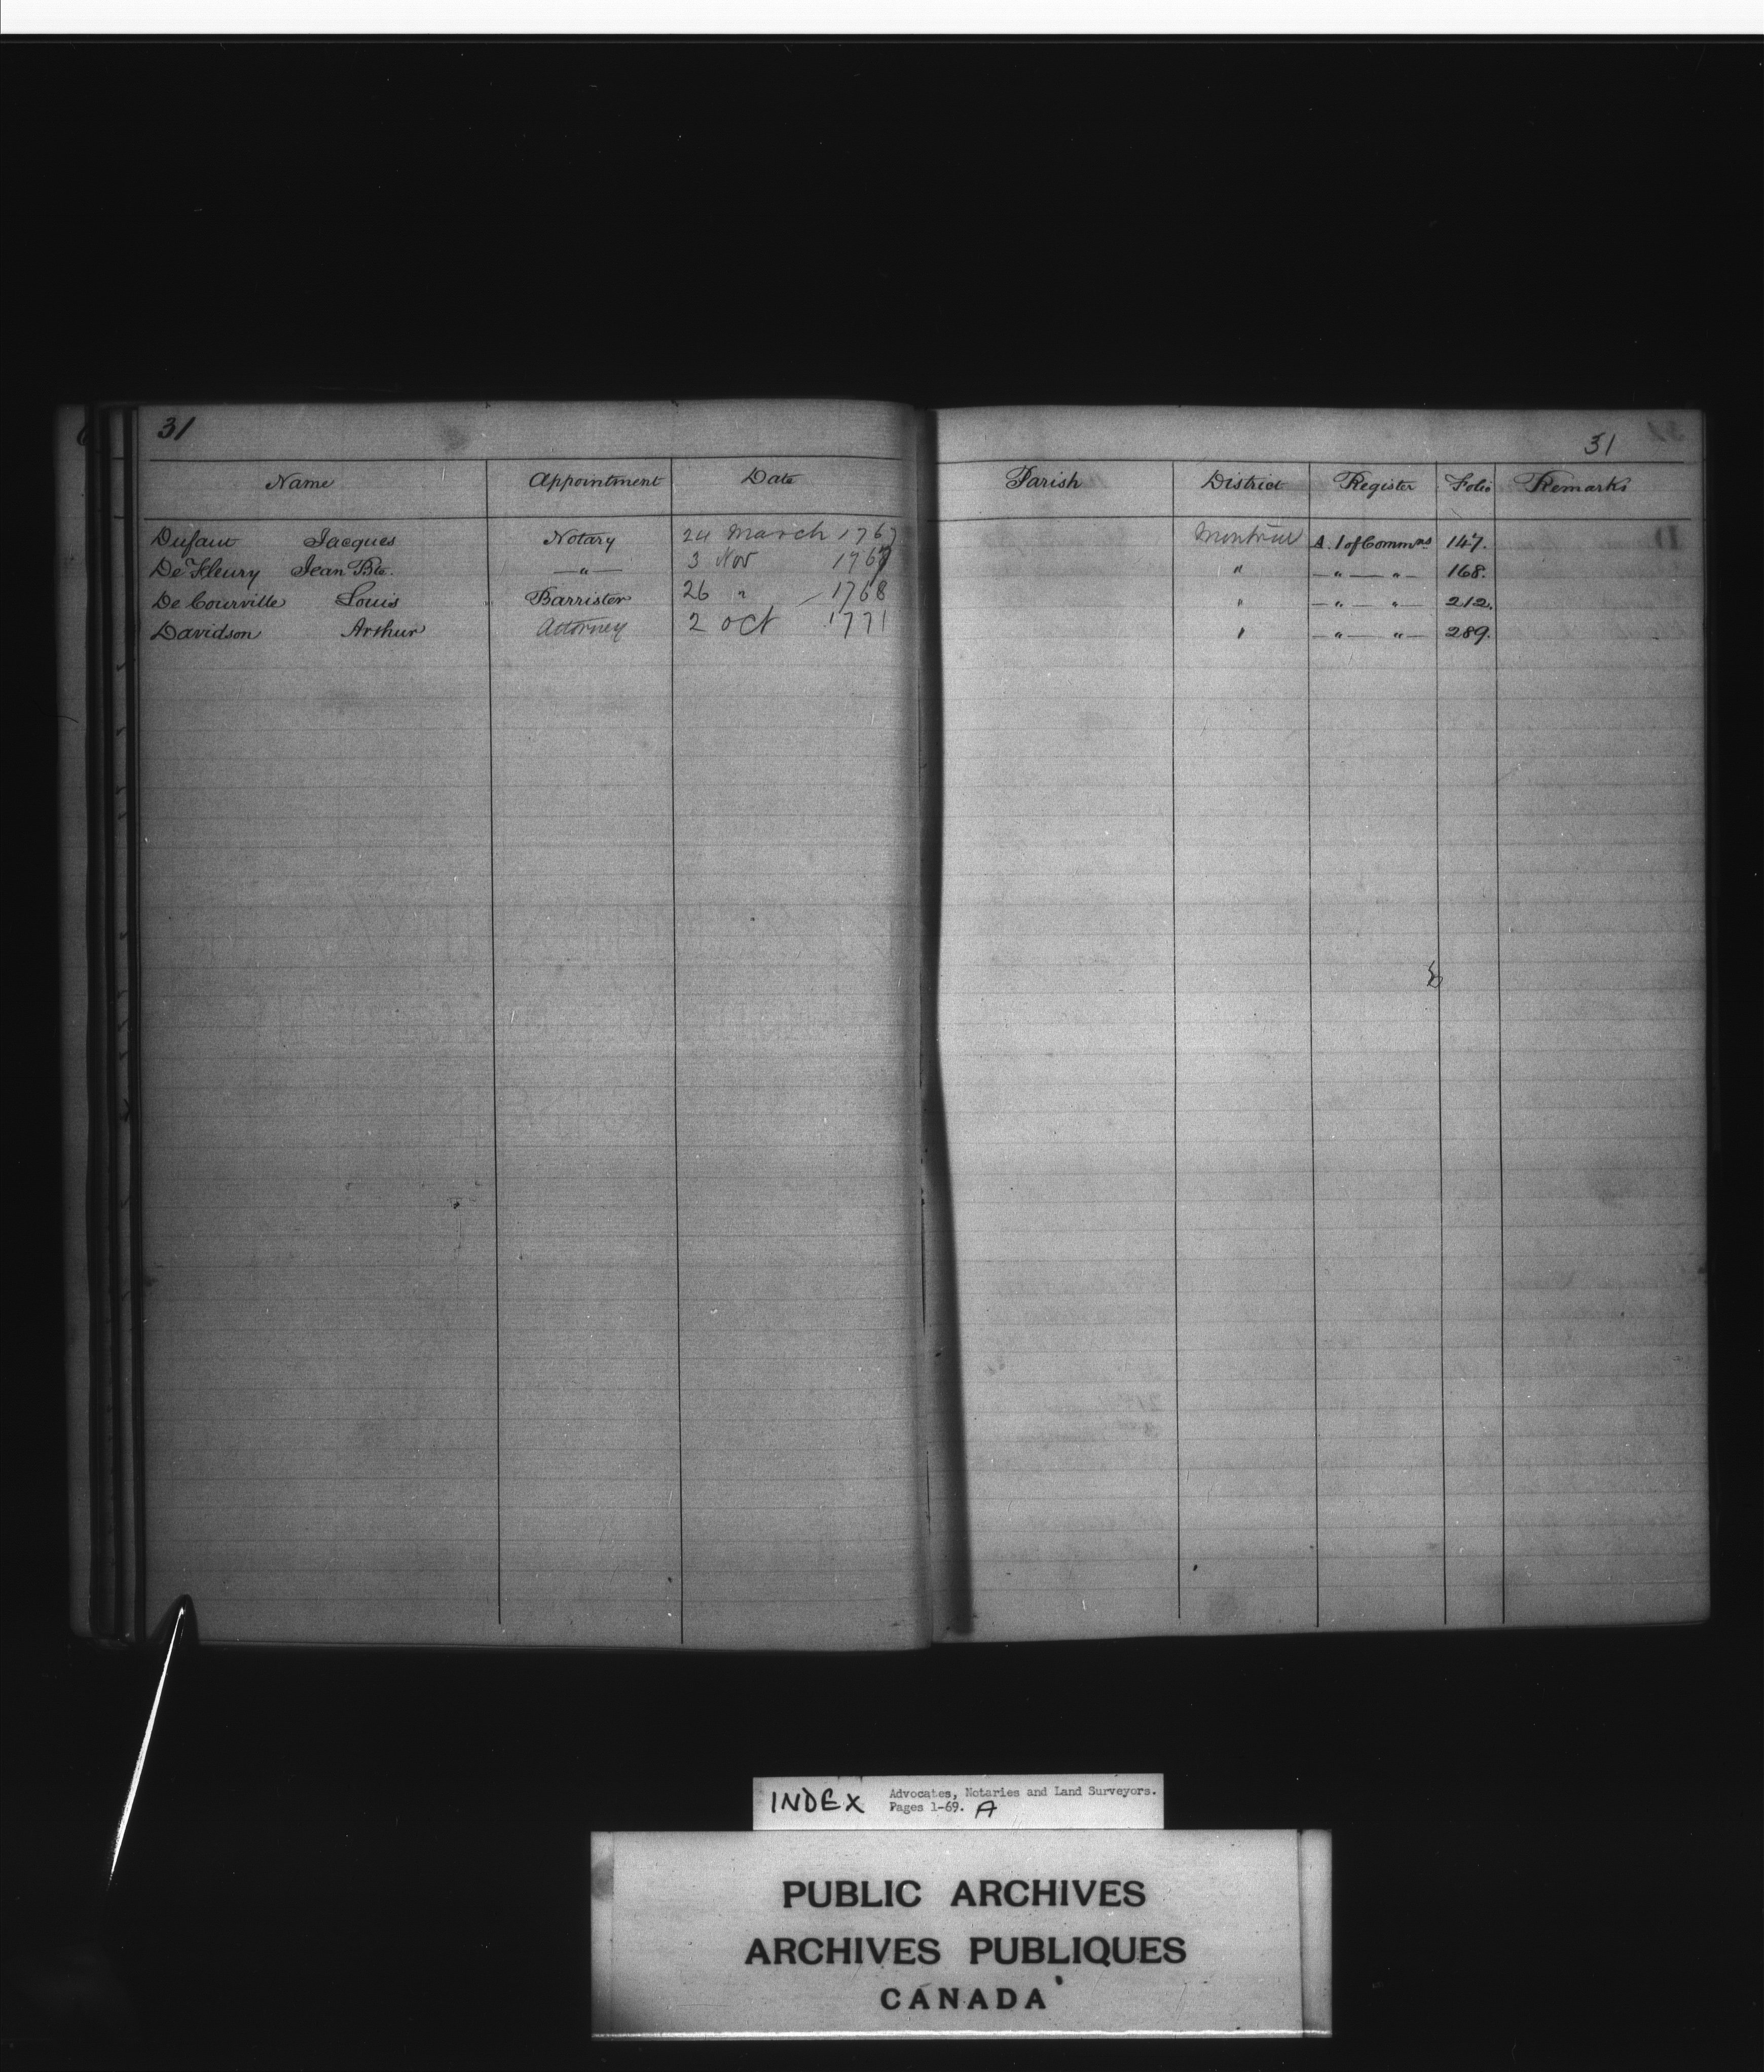 31
31
Name Appointment Date Parish District Register Folio Remarks
Dufaut Jacques Notary 24 March 1767 Montreal A. 1 of Commns 147.
De Fleury Jean Bte. —"— 3 Nov 1767 " —"— "— 168.
De Courville Louis Barrister 26 " 1768 " —"— "— 212.
Davidson Arthur Attorney 2 Oct 1771 " —"— "— 289.
INDEX Advocates, Notaries and Land Surveyors.
Pages 1-69. A
PUBLIC ARCHIVES
ARCHIVES PUBLIQUES
CANADA